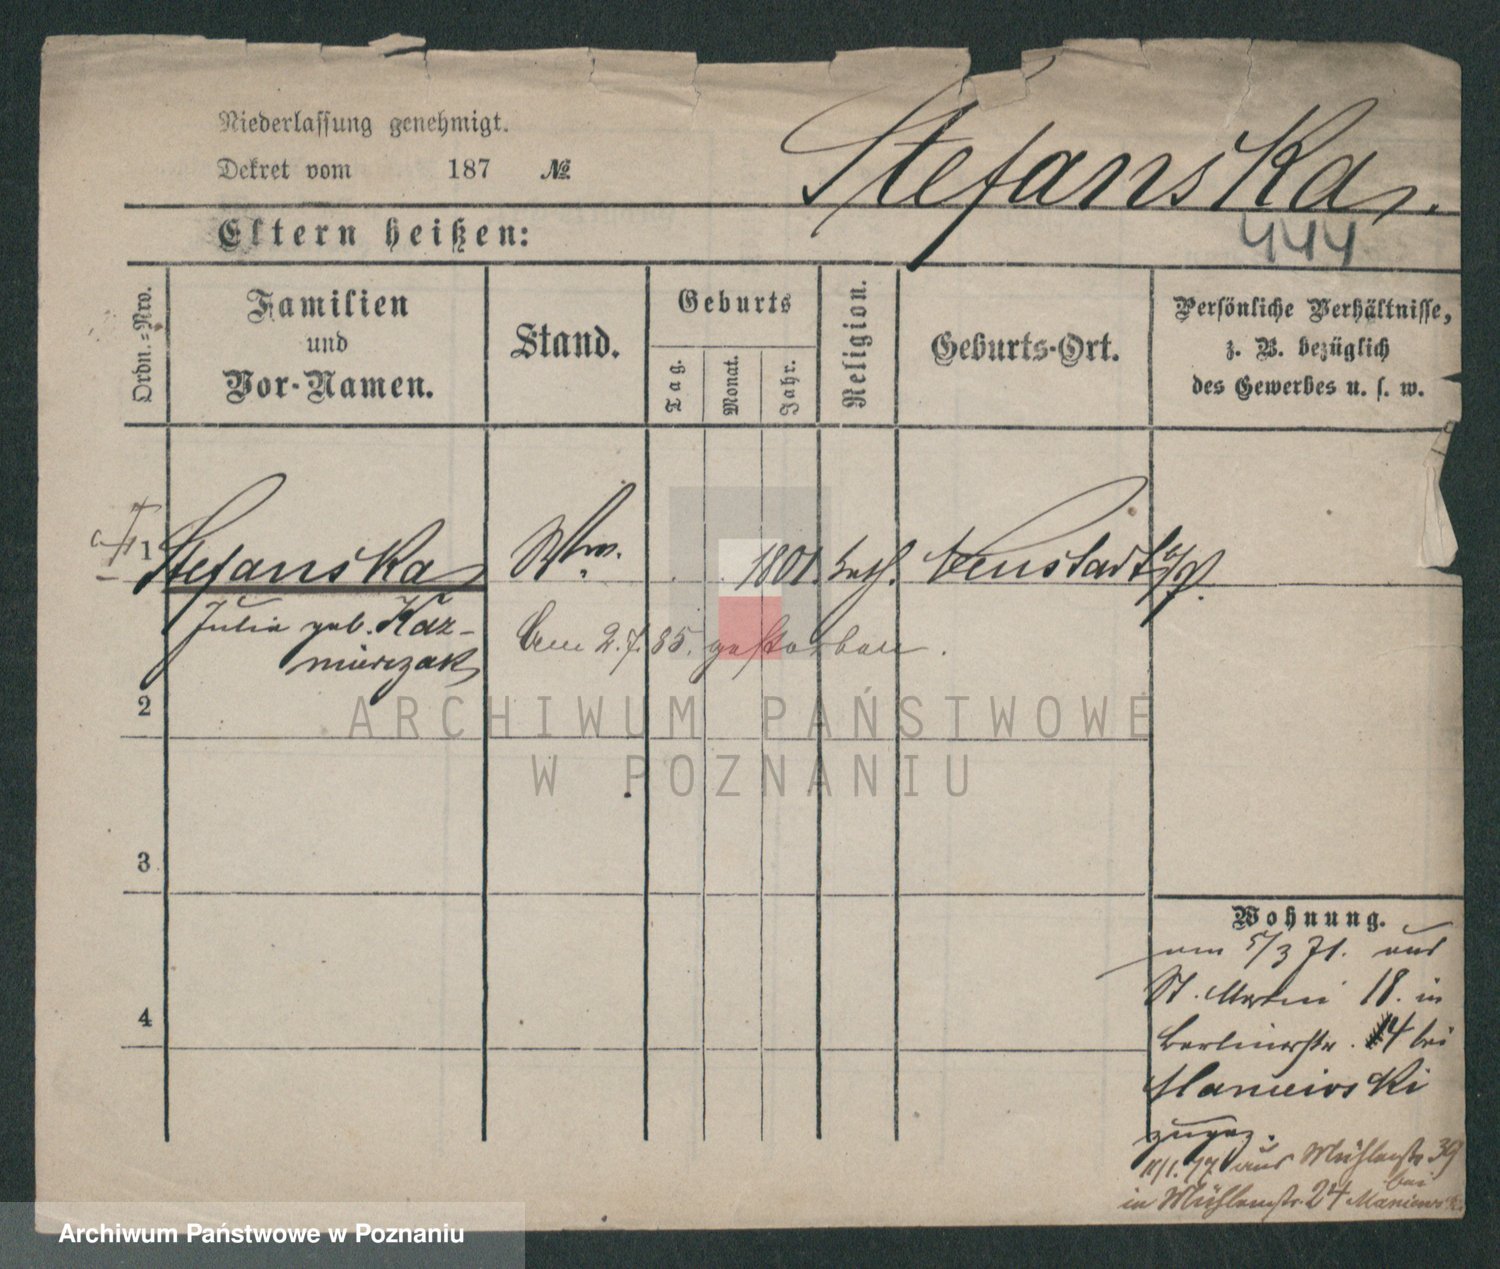 Niederlassung genehmigt.
Dekret vom 187 №
Stefanska.
444
Eltern heißen:
Ordn.-Nro.
Familien
und
Vor-Namen.
Stand.
Geburts
Tag.
Monat.
Jahr.
Religion.
Geburts-Ort.
Persönliche Verhältnisse,
z. B. bezüglich
des Gewerbes u. s. w.
1 Stefanska Wtw. 1801. kath. Neustadt a/W.
Julia geb. Kaz-
mierczak
Am 2.7.85. gestorben.
2
ARCHIWUM PAŃSTWOWE
W POZNANIU
3
4
Wohnung.
am 5/3 71. aus
St. Martin 18. in
Berlinerstr. 14 bei
Maniewski
zugez.
11/1. 77 aus Mühlenstr 39
in Mühlenstr. 24 bei
Archiwum Państwowe w Poznaniu